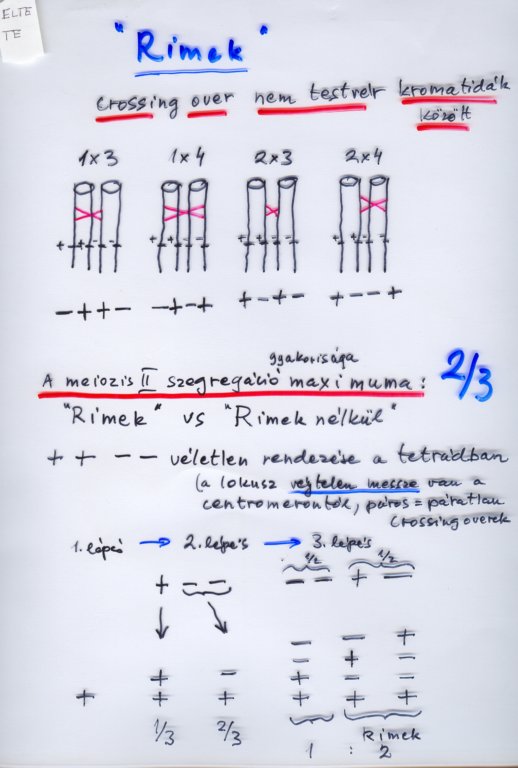 ELTE
TE
"Rímek"
crossing over nem testvér kromatidák
között
1x3 1x4 2x3 2x4
+ + - - + + - - + + - - + + - -
- + + - - + - + + - + - + - - +
gyakorisága
A meiozis II szegregáció maximuma: 2/3
"Rímek" vs "Rímek nélkül"
+ + - - véletlen rendezése a tetrádban
(a lokusz végtelen messze van a
centromerontól, páros = páratlan
crossing overek
1. lépés → 2. lépés → 3. lépés
1/2 1/2
+ - - - - + - -
- - +
- + -
+ - + - -
+ + + + + +
1/3 2/3 Rímek
1 : 2